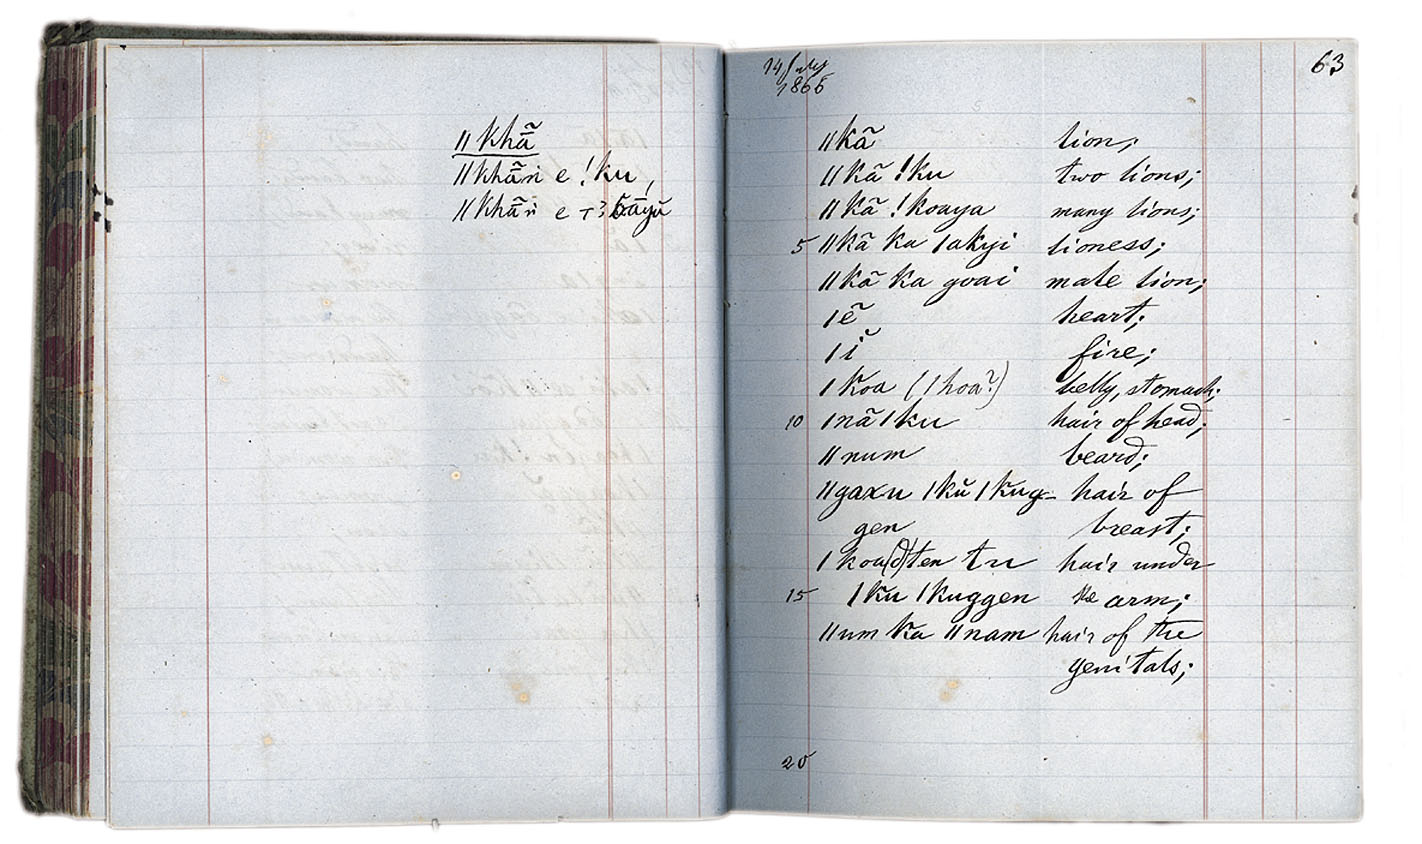 ǁkhã̄
ǁkhã̄ṅ e !ku,
ǁkhã̄ṅ e
14 July
1866
63
ǁkã lion;
ǁkã !ku two lions;
ǁkã !koaya many lions;
5 ǁkã ka ǀakyi lioness;
ǁkã ka goai male lion;
ǀẽ heart;
ǀĭ fire;
ǀkoa (ǀhoa?) belly, stomach;
10 ǀnã ǀku hair of head;
ǁnum beard;
ǁgaxu ǀkŭ ǀkug- hair of
gen breast;
ǀkoa(d)ten tu hair under
15 ǀku ǀkuggen the arm;
ǁum ka ǁnam hair of the
genitals;
20